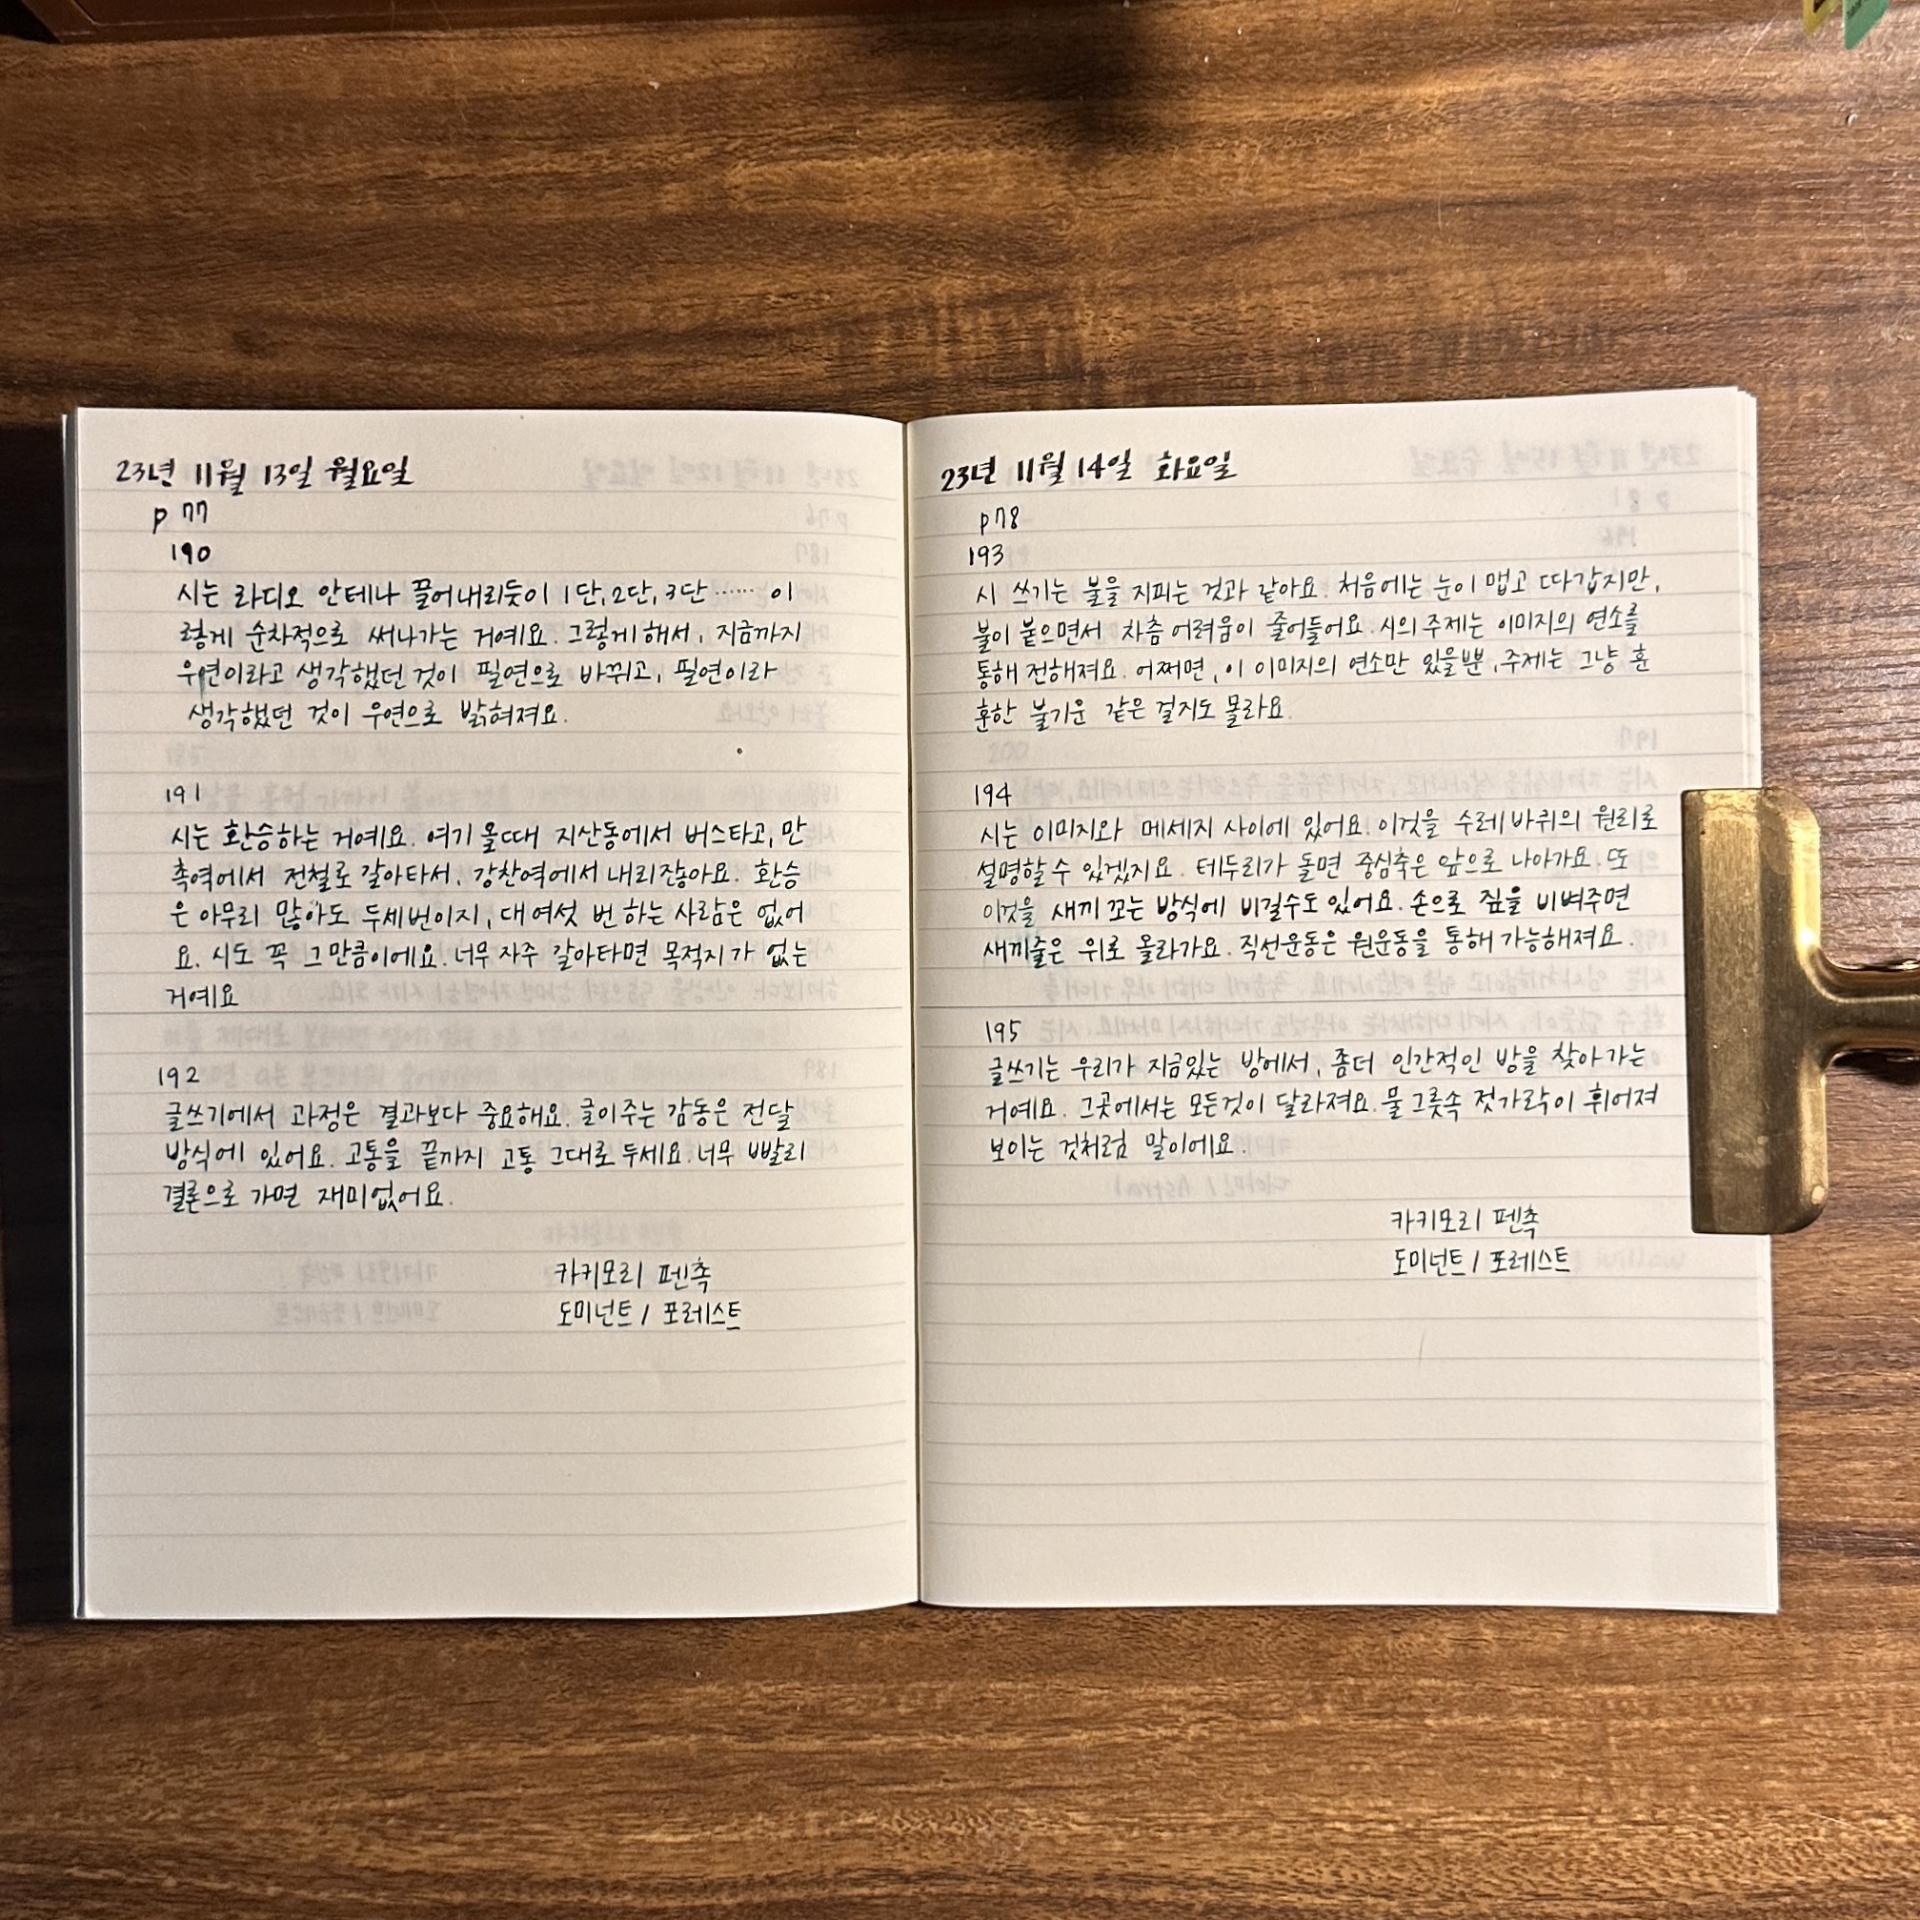 23년 11월 13일 월요일
p 77
190
시는 라디오 안테나 끌어내리듯이 1단, 2단, 3단 …… 이
렇게 순차적으로 써나가는 거예요. 그렇게 해서, 지금까지
우연이라고 생각했던 것이 필연으로 바뀌고, 필연이라
생각했던 것이 우연으로 밝혀져요.
191
시는 환승하는 거예요. 여기 올때 지산동에서 버스타고, 만
촉역에서 전철로 갈아타서, 강찬역에서 내리잖아요. 환승
은 아무리 많아도 두세번이지, 대여섯 번 하는 사람은 없어
요. 시도 꼭 그만큼이에요. 너무 자주 갈아타면 목적지가 없는
거예요
192
글쓰기에서 과정은 결과보다 중요해요. 글이 주는 감동은 전달
방식에 있어요. 고통을 끝까지 고통 그대로 두세요. 너무 빨리
결론으로 가면 재미없어요.
카키모리 펜촉
도미넌트 / 포레스트
23년 11월 14일 화요일
p78
193
시 쓰기는 불을 지피는 것과 같아요. 처음에는 눈이 맵고 따갑지만,
불이 붙으면서 차츰 어려움이 줄어들어요. 시의 주제는 이미지의 연소를
통해 전해져요. 어쩌면, 이 이미지의 연소만 있을뿐, 주제는 그냥 훈
훈한 불기운 같은 걸지도 몰라요.
194
시는 이미지와 메세지 사이에 있어요. 이것을 수레바퀴의 원리로
설명할 수 있겠지요. 테두리가 돌면 중심축은 앞으로 나아가요. 또
이것을 새끼 꼬는 방식에 비길수도 있어요. 손으로 짚을 비벼주면
새끼줄은 위로 올라가요. 직선운동은 원운동을 통해 가능해져요.
195
글쓰기는 우리가 지금있는 방에서, 좀더 인간적인 방을 찾아가는
거예요. 그곳에서는 모든것이 달라져요. 물 그릇속 젓가락이 휘어져
보이는 것처럼 말이에요.
카키모리 펜촉
도미넌트 / 포레스트